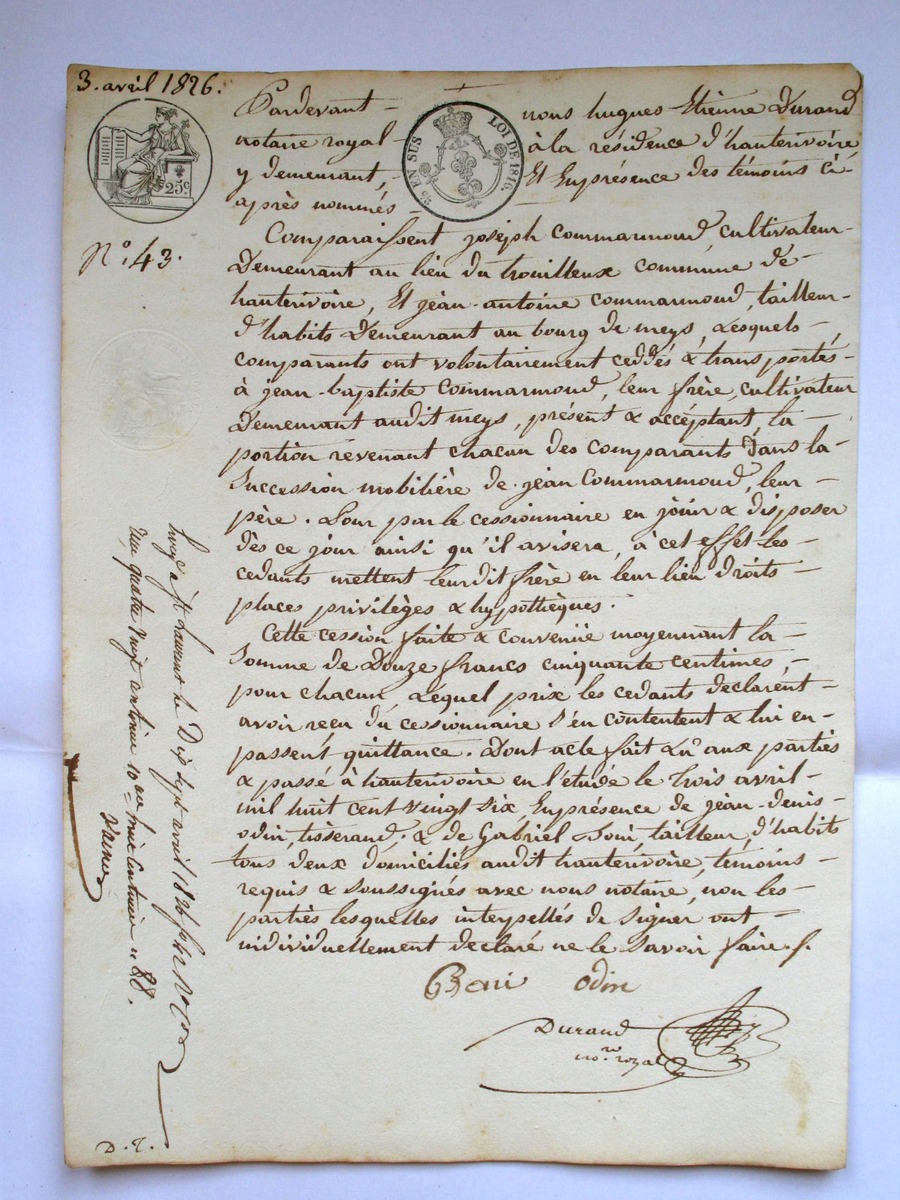 3. avril 1826.
Pardevant - nous hugues Etienne Durand
notaire royal à la résidence d'hauterivoire
y demeurant, Et Enprésence des témoins ci-
après nommés -
25 EN SUS LOI DE 1816.
25c
N.o 43.
Comparaissent joseph commarmond, cultivateur -
Demeurant au lieu du trouilleux commune dé -
hauterivoire, Et jean-antoine commarmond, tailleur -
d'habits Demeurant au bourg de meys, Lesquels -
comparants ont volontairement ceddés & transportés -
à jean-baptiste commarmond, leur frère, cultivateur
Demeurant audit meys, présent & accéptant, la -
portion revenant chacun des comparants Dans la -
Succession mobilière de jean Commarmond, leur -
père. Pour par le cessionnaire en jouir & disposer
dès ce jour ainsi qu'il avisera, à cet effet les -
cedants mettent leurdit frère en leur lieu droits -
places privilèges & hypothèques.
Cette cession faite & convenüe moyennant la -
Somme de Douze francs cinquante centimes, -
pour chacun, Lequel prix les cedants declarent -
avoir reçu du cessionnaire s'en contentent & lui en -
passent quittance. Dont acte fait Lu aux parties
& passé à hauterivoire en l'étude le trois avril -
mil huit cent vingt six, Enprésence de jean-denis
odin, tisserand, & de Gabriel, tailleur, d'habits
tous deux domiciliés audit hauterivoire, témoins -
requis & soussignés avec nous notaire, non les -
parties lesquelles interpellés de signer ont -
individuellement declaré ne le savoir faire.
odin
Durand
no.re royal
St Laurent le Dix sept avril 1826
quatre vingt centimes 10e centimes 88.
D. T.